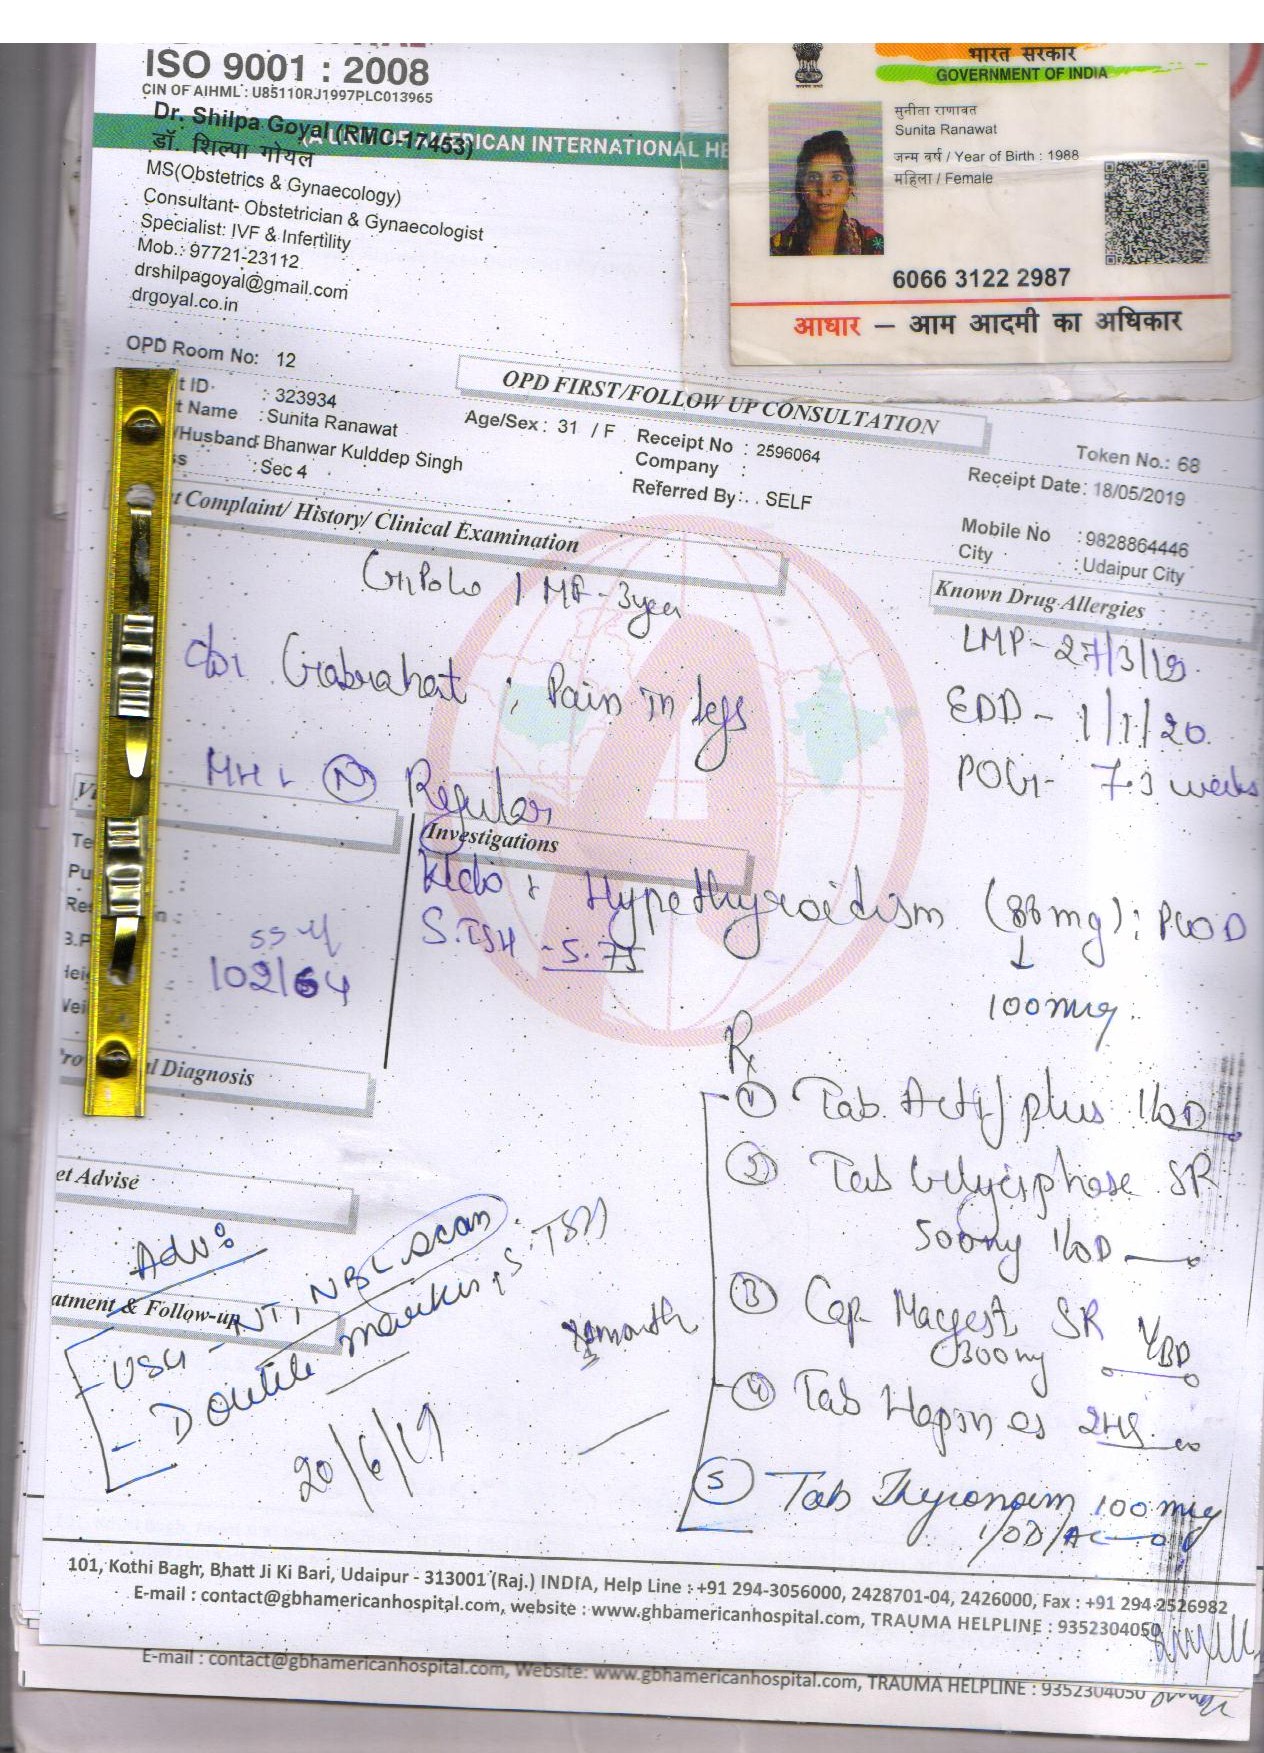 ISO 9001 : 2008
CIN OF AIHML : U85110RJ1997PLC013965
Dr. Shilpa Goyal (RMC-17453)
डॉ. शिल्पा गोयल
MS(Obstetrics & Gynaecology)
Consultant- Obstetrician & Gynaecologist
Specialist: IVF & Infertility
Mob.: 97721-23112
drshilpagoyal@gmail.com
drgoyal.co.in
भारत सरकार
GOVERNMENT OF INDIA
सुनीता राणावत
Sunita Ranawat
जन्म वर्ष / Year of Birth : 1988
महिला / Female
6066 3122 2987
आधार – आम आदमी का अधिकार
OPD Room No: 12
OPD FIRST/FOLLOW UP CONSULTATION
t ID : 323934
t Name : Sunita Ranawat
/Husband : Bhanwar Kulddep Singh
ss : Sec 4
Age/Sex : 31 / F
Receipt No : 2596064
Company :
Referred By : . SELF
Token No.: 68
Receipt Date: 18/05/2019
Mobile No : 9828864446
City : Udaipur City
t Complaint/ History/ Clinical Examination
Known Drug Allergies
MF - 3year
Gabrahat ; Pain in legs
LMP - 27/3/19
EDD - 1/1/20
POG - 7.3 weeks
MH : N Regular
Investigations
K/c/o : Hypothyroidism (88 mg) ; PCOD
S.TSH - 5.75
100 mcg
102/64
l Diagnosis
Rx
1 Tab. Actif plus 1/OD
2 Tab Glyciphase SR
500mg 1/OD
3 Cap Macgest SR 1/BD
300mg
4 Tab 2HS
5 Tab Thyronorm 100 mcg
1/OD/AC
et Advise
Adv:
atment & Follow-up
- USG - NT, NBL scan
- Double marker, S.TSH
month
20/6/19
101, Kothi Bagh, Bhatt Ji Ki Bari, Udaipur - 313001 (Raj.) INDIA, Help Line : +91 294-3056000, 2428701-04, 2426000, Fax : +91 294-2526982
E-mail : contact@gbhamericanhospital.com, website : www.ghbamericanhospital.com, TRAUMA HELPLINE : 9352304050
E-mail : contact@gbhamericanhospital.com, Website: www.gbhamericanhospital.com, TRAUMA HELPLINE : 9352304050